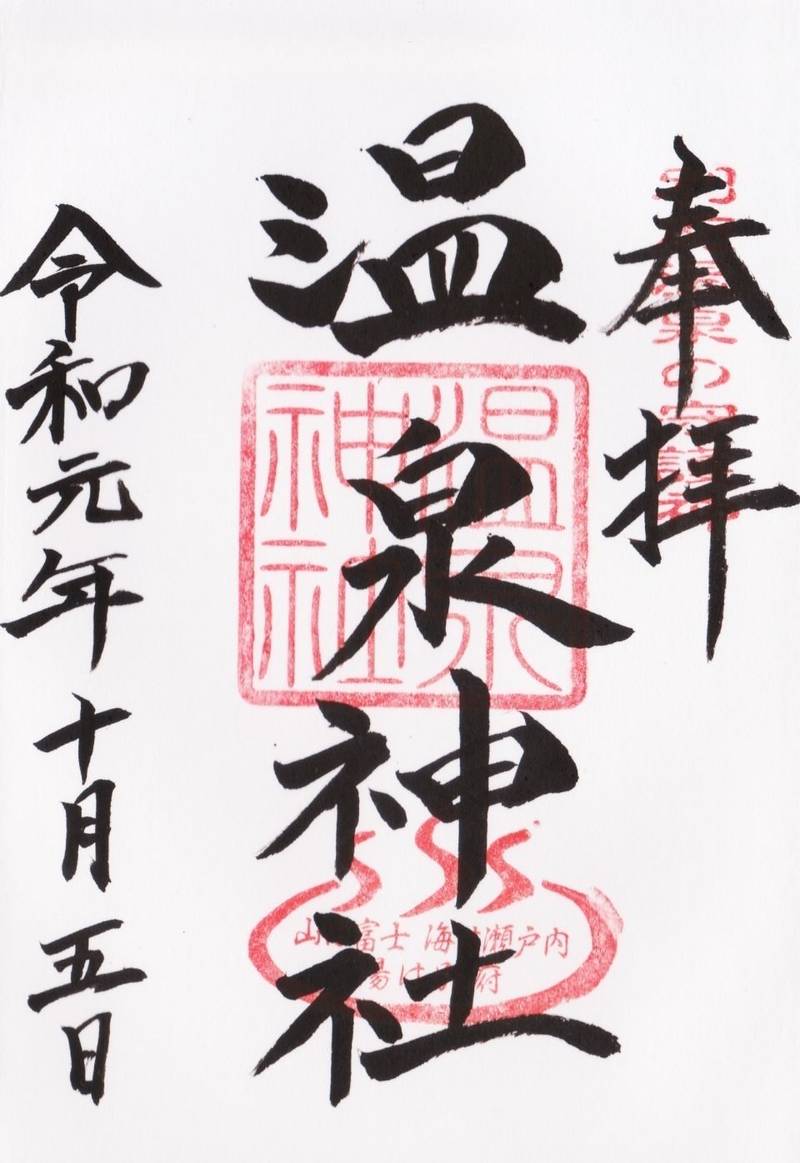 奉拝
温泉神社
温泉
神社
山は富士 海は瀬戸内
湯は別府
令和元年十月五日